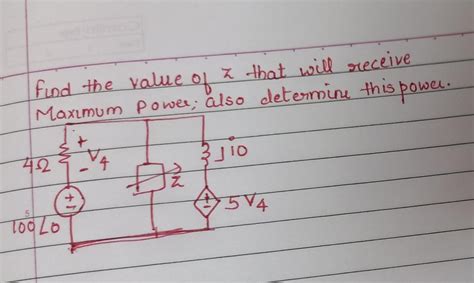 find the value of z that will receive
Maximum Power; also determine this power.
+
4Ω V4 j10
- z
+
-
100∠0 + - 5V4